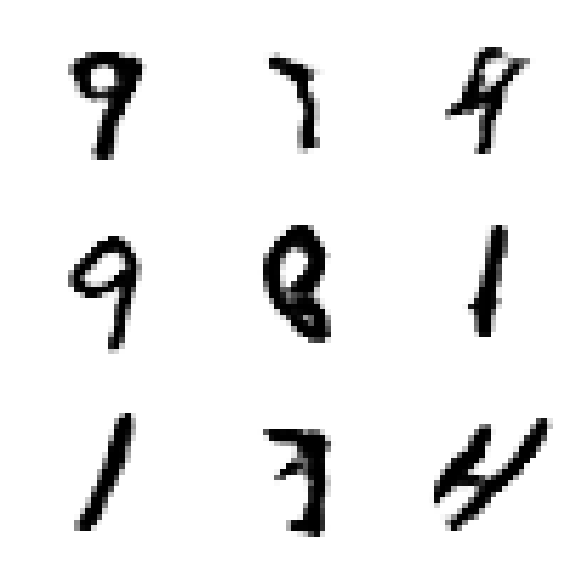 9 7 9
9 8 1
1 3 4